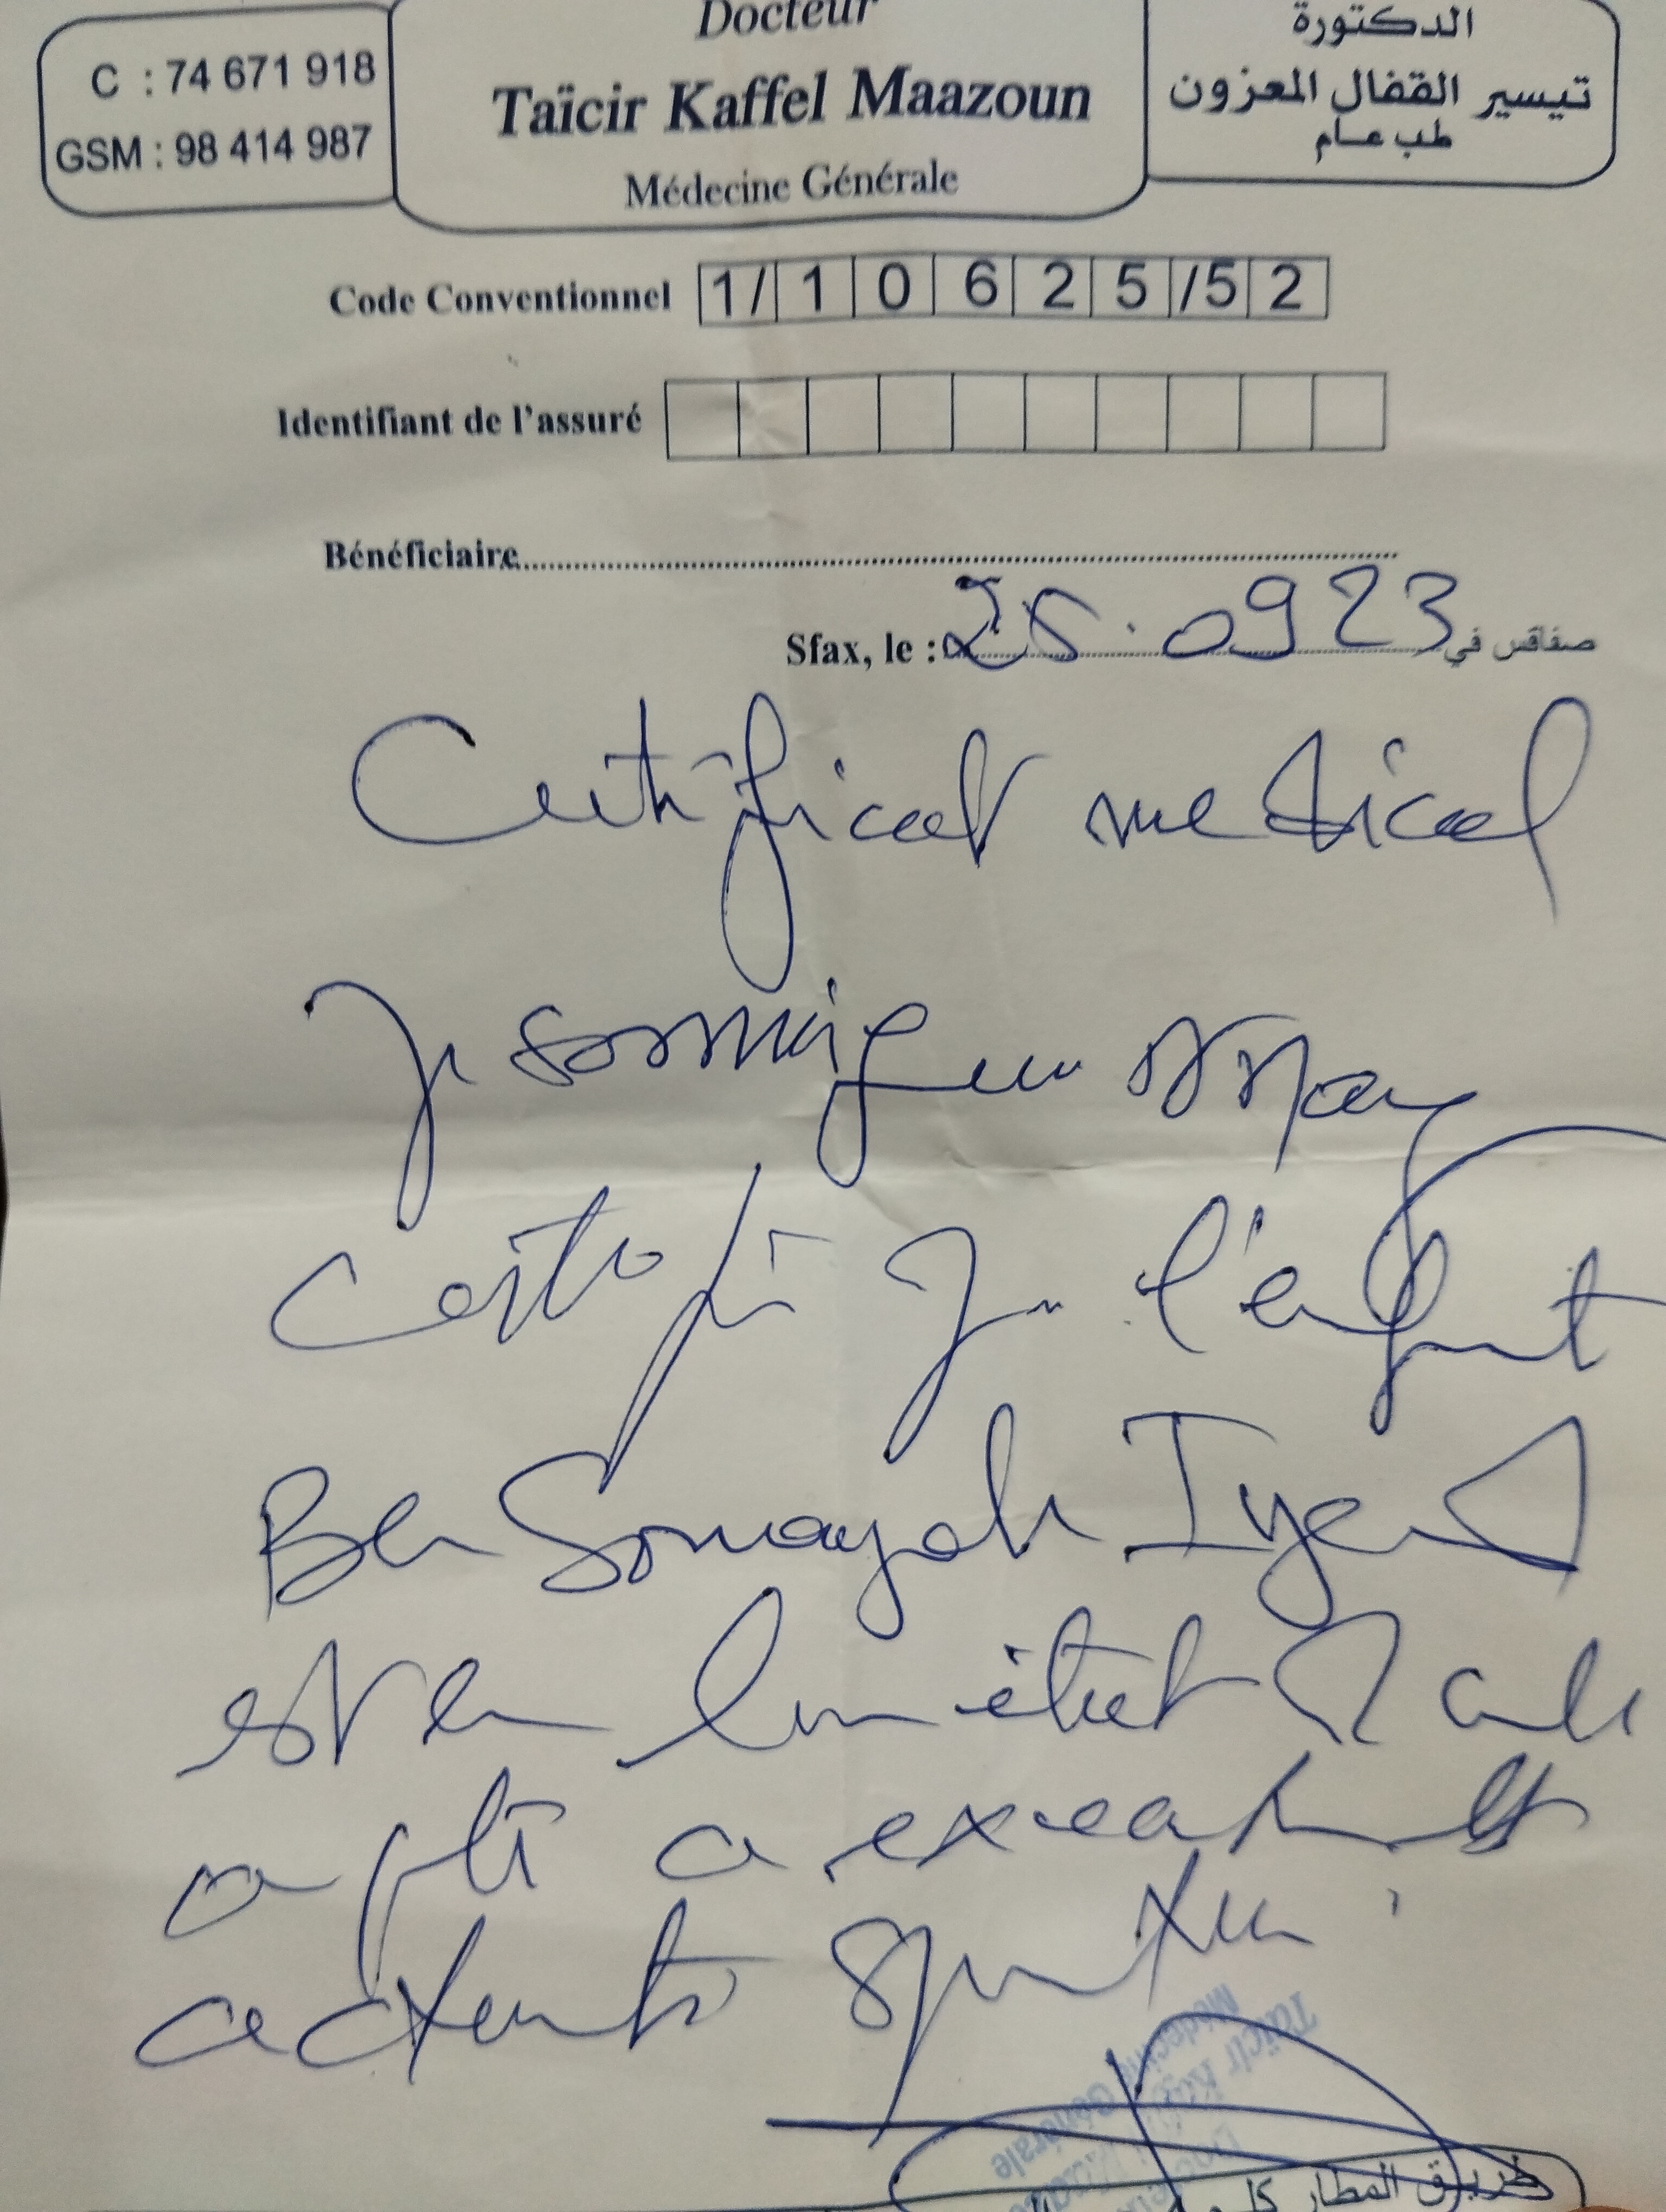 Docteur
Taïcir Kaffel Maazoun
Médecine Générale
C : 74 671 918
GSM : 98 414 987
الدكتورة
تيسير القفال المعزون
طب عام
Code Conventionnel 1/ 1 0 6 2 5 /5 2
Identifiant de l'assuré
Bénéficiaire
Sfax, le : 25.09 23 صفاقس في
Certificat medical
Je soussigné
certifie que l'enfant
Ben Somayah Iyed
est en bon état de
apte a exercer
activité sportive
Taïcir
Médecine Générale
طريق المطار كلم